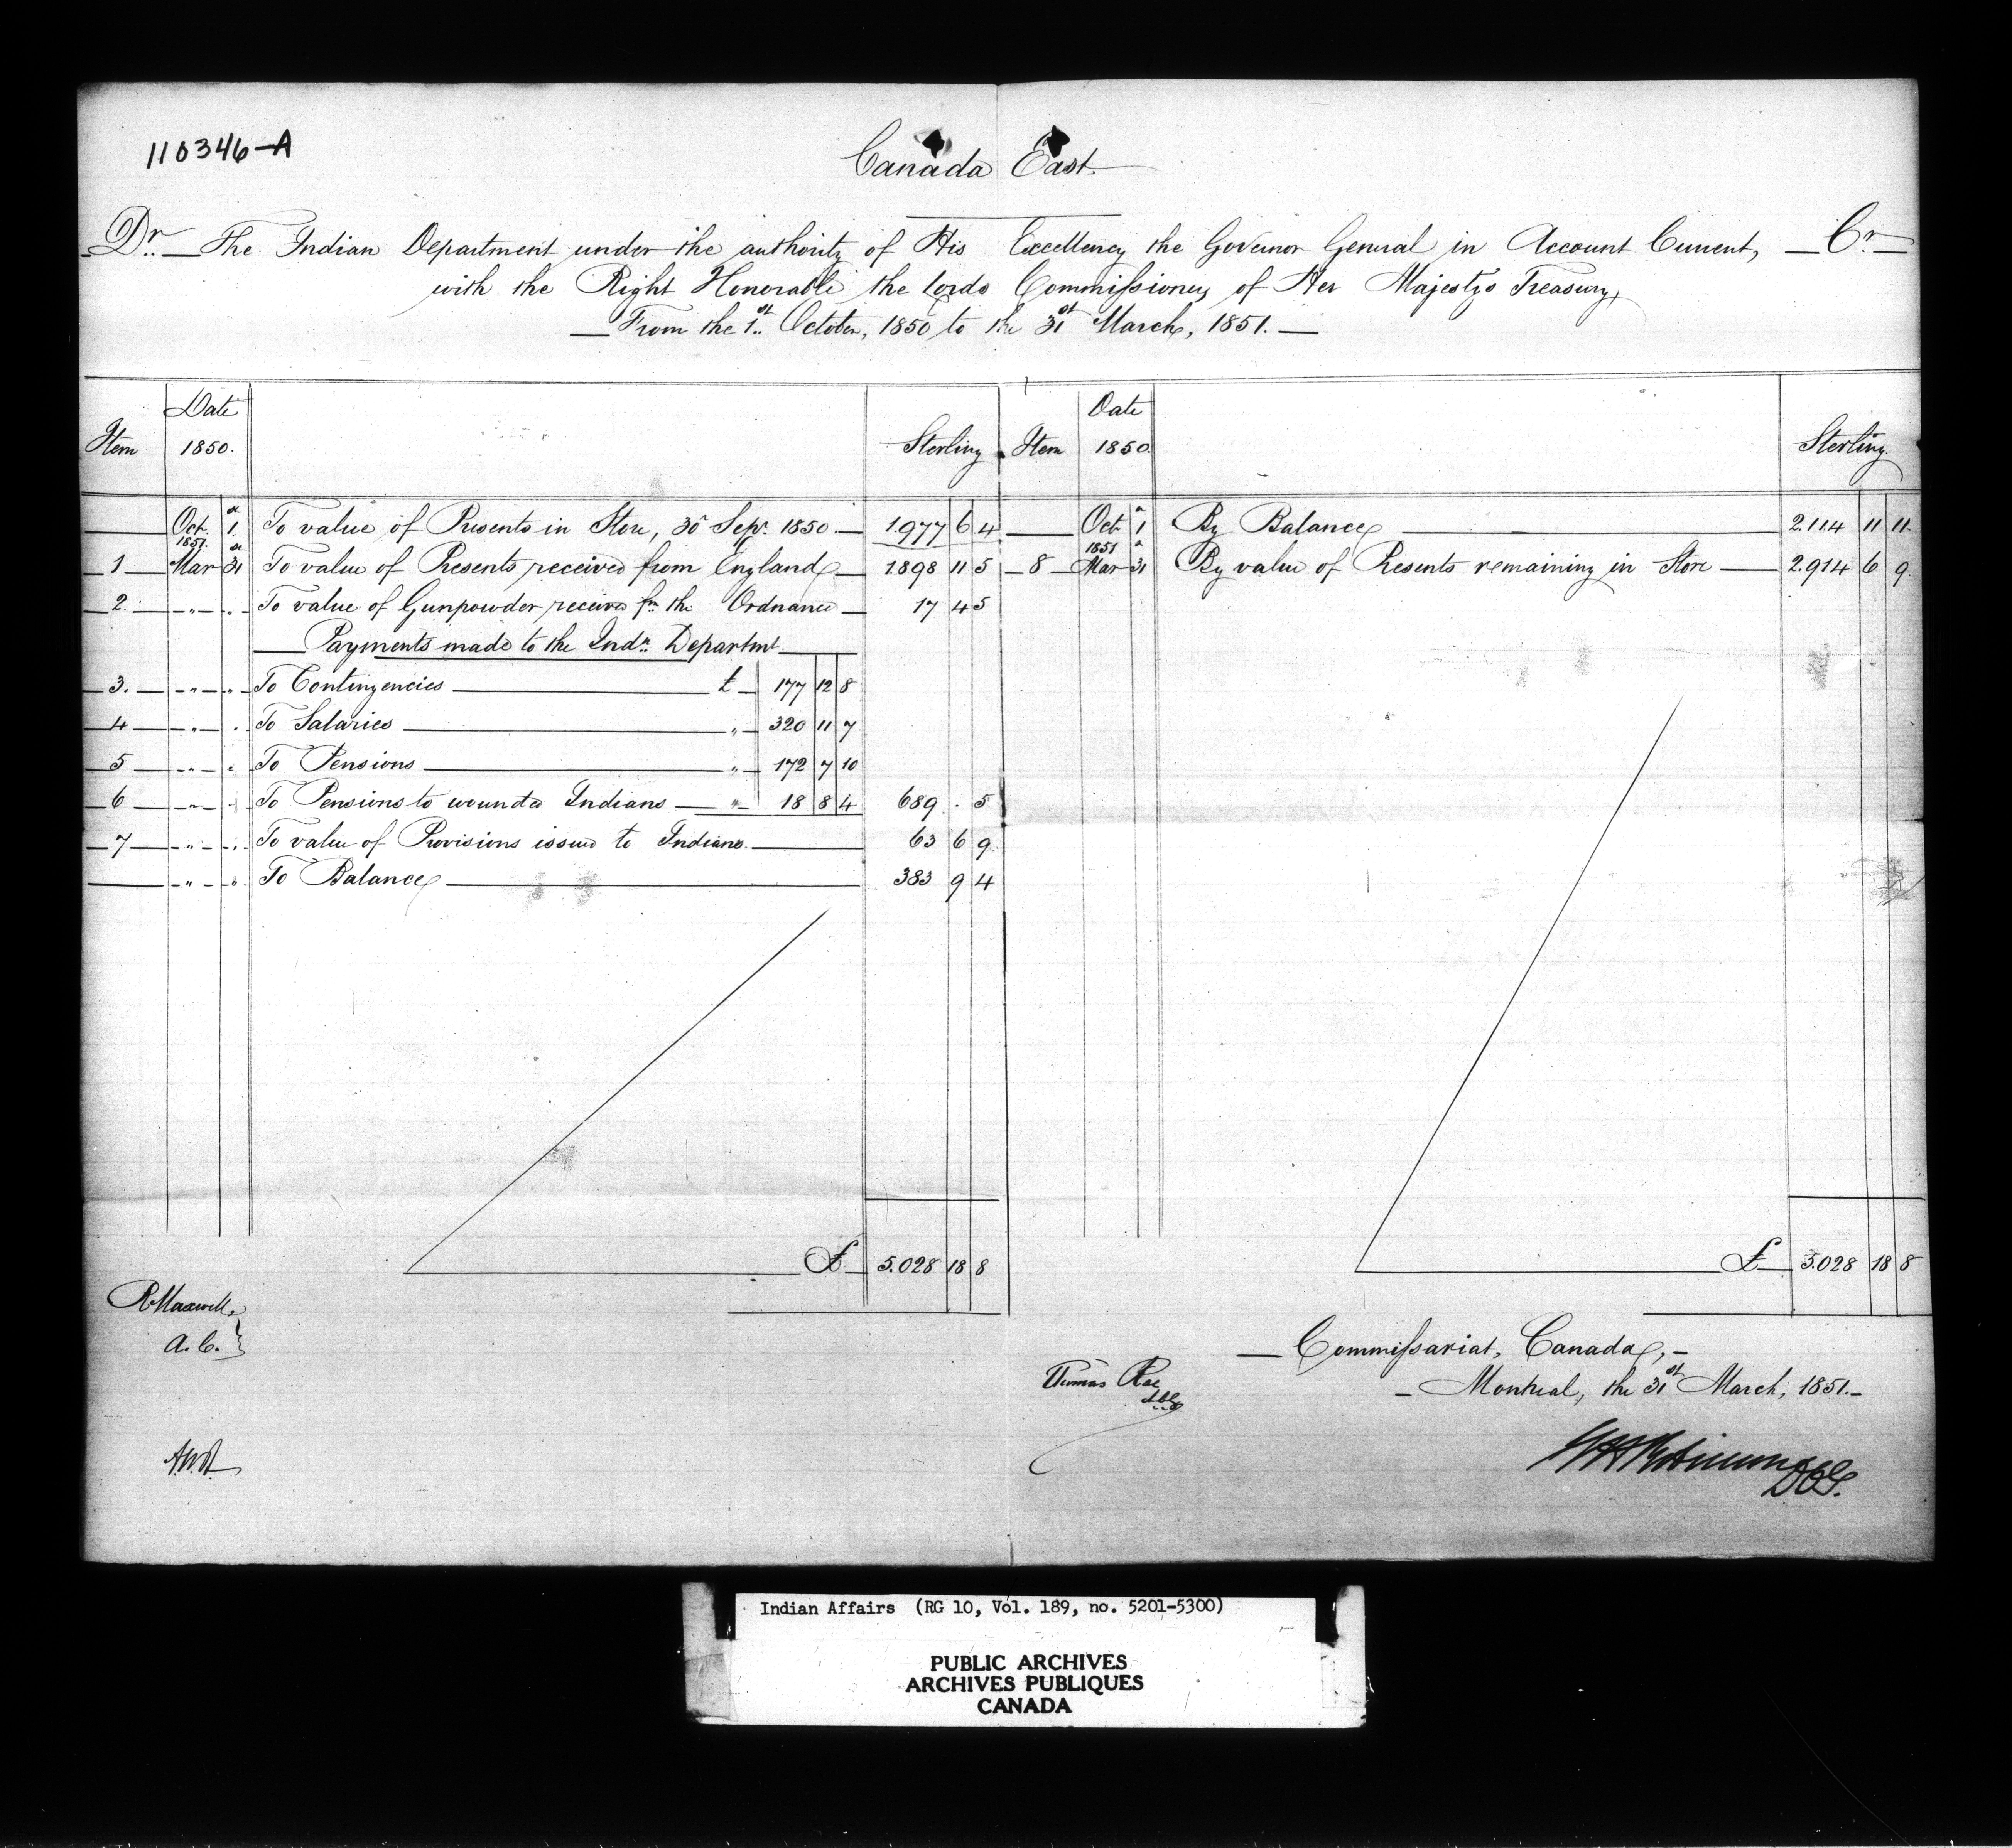 110346-A
Canada East.
Dr. The Indian Department under the authority of His Excellency the Governor General in Account Current, Cr.
with the Right Honorable the Lords Commissioners of Her Majestys Treasury,
From the 1st October, 1850 to the 31st March, 1851.
Item Date 1850. Sterling Item Date 1850. Sterling
Oct. 1 To value of Presents in Store, 30 Sepr. 1850 1.977 6 4 Oct. 1 By Balance 2.114 11 11
1851. 1851
1 Mar 31 To value of Presents received from England 1.898 11 5 8 Mar 31 By value of Presents remaining in Store 2.914 6 9
2. " " To value of Gunpowder received fm the Ordnance 17 4 5
Payments made to the Indn. Departmt
3. " " To Contingencies £ 177 12 8
4 " " To Salaries " 320 11 7
5 " " To Pensions " 172 7 10
6 " " To Pensions to wounded Indians " 18 8 4 689 . 5
7 " " To value of Provisions issued to Indians. 63 6 9
" " To Balance 383 9 4
£ 5.028 18 8 £ 5.028 18 8
R Maxwell.
A. C.
Commissariat, Canada,
Thomas Rae
Montreal, the 31st March, 1851.
Indian Affairs (RG 10, Vol. 189, no. 5201-5300)
PUBLIC ARCHIVES
ARCHIVES PUBLIQUES
CANADA